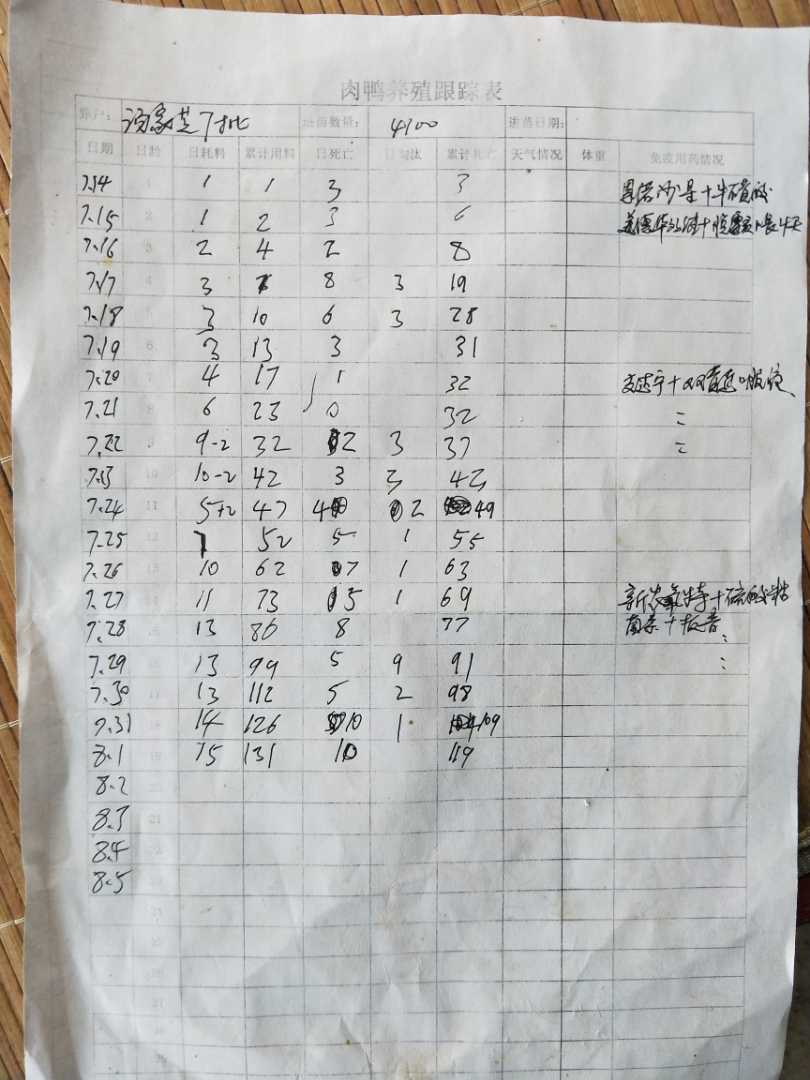 肉鸭养殖跟踪表
养户: 汤家芝7批 进苗数量: 4100 进苗日期:
日期 日龄 日耗料 累计用料 日死亡 日淘汰 累计死亡 天气情况 体重 免疫用药情况
7.14 1 1 1 3 3
7.15 2 1 2 3 6
7.16 3 2 4 2 8
7.17 4 3 7 8 3 19
7.18 5 3 10 6 3 28
7.19 6 3 13 3 31
7.20 7 4 17 1 32
7.21 8 6 23 0 32 =
7.22 9 9-2 32 2 3 37 =
7.23 10 10-2 42 3 3 43
7.24 11 5+2 47 4 2 49
7.25 12 7 52 5 1 55
7.26 13 10 62 7 1 63
7.27 14 11 73 5 1 69
7.28 15 13 86 8 77
7.29 16 13 99 5 9 91
7.30 17 13 112 5 2 98
7.31 18 14 126 10 1 109
8.1 19 15 131 10 119
8.2 20
8.3 21
8.4 22
8.5 23